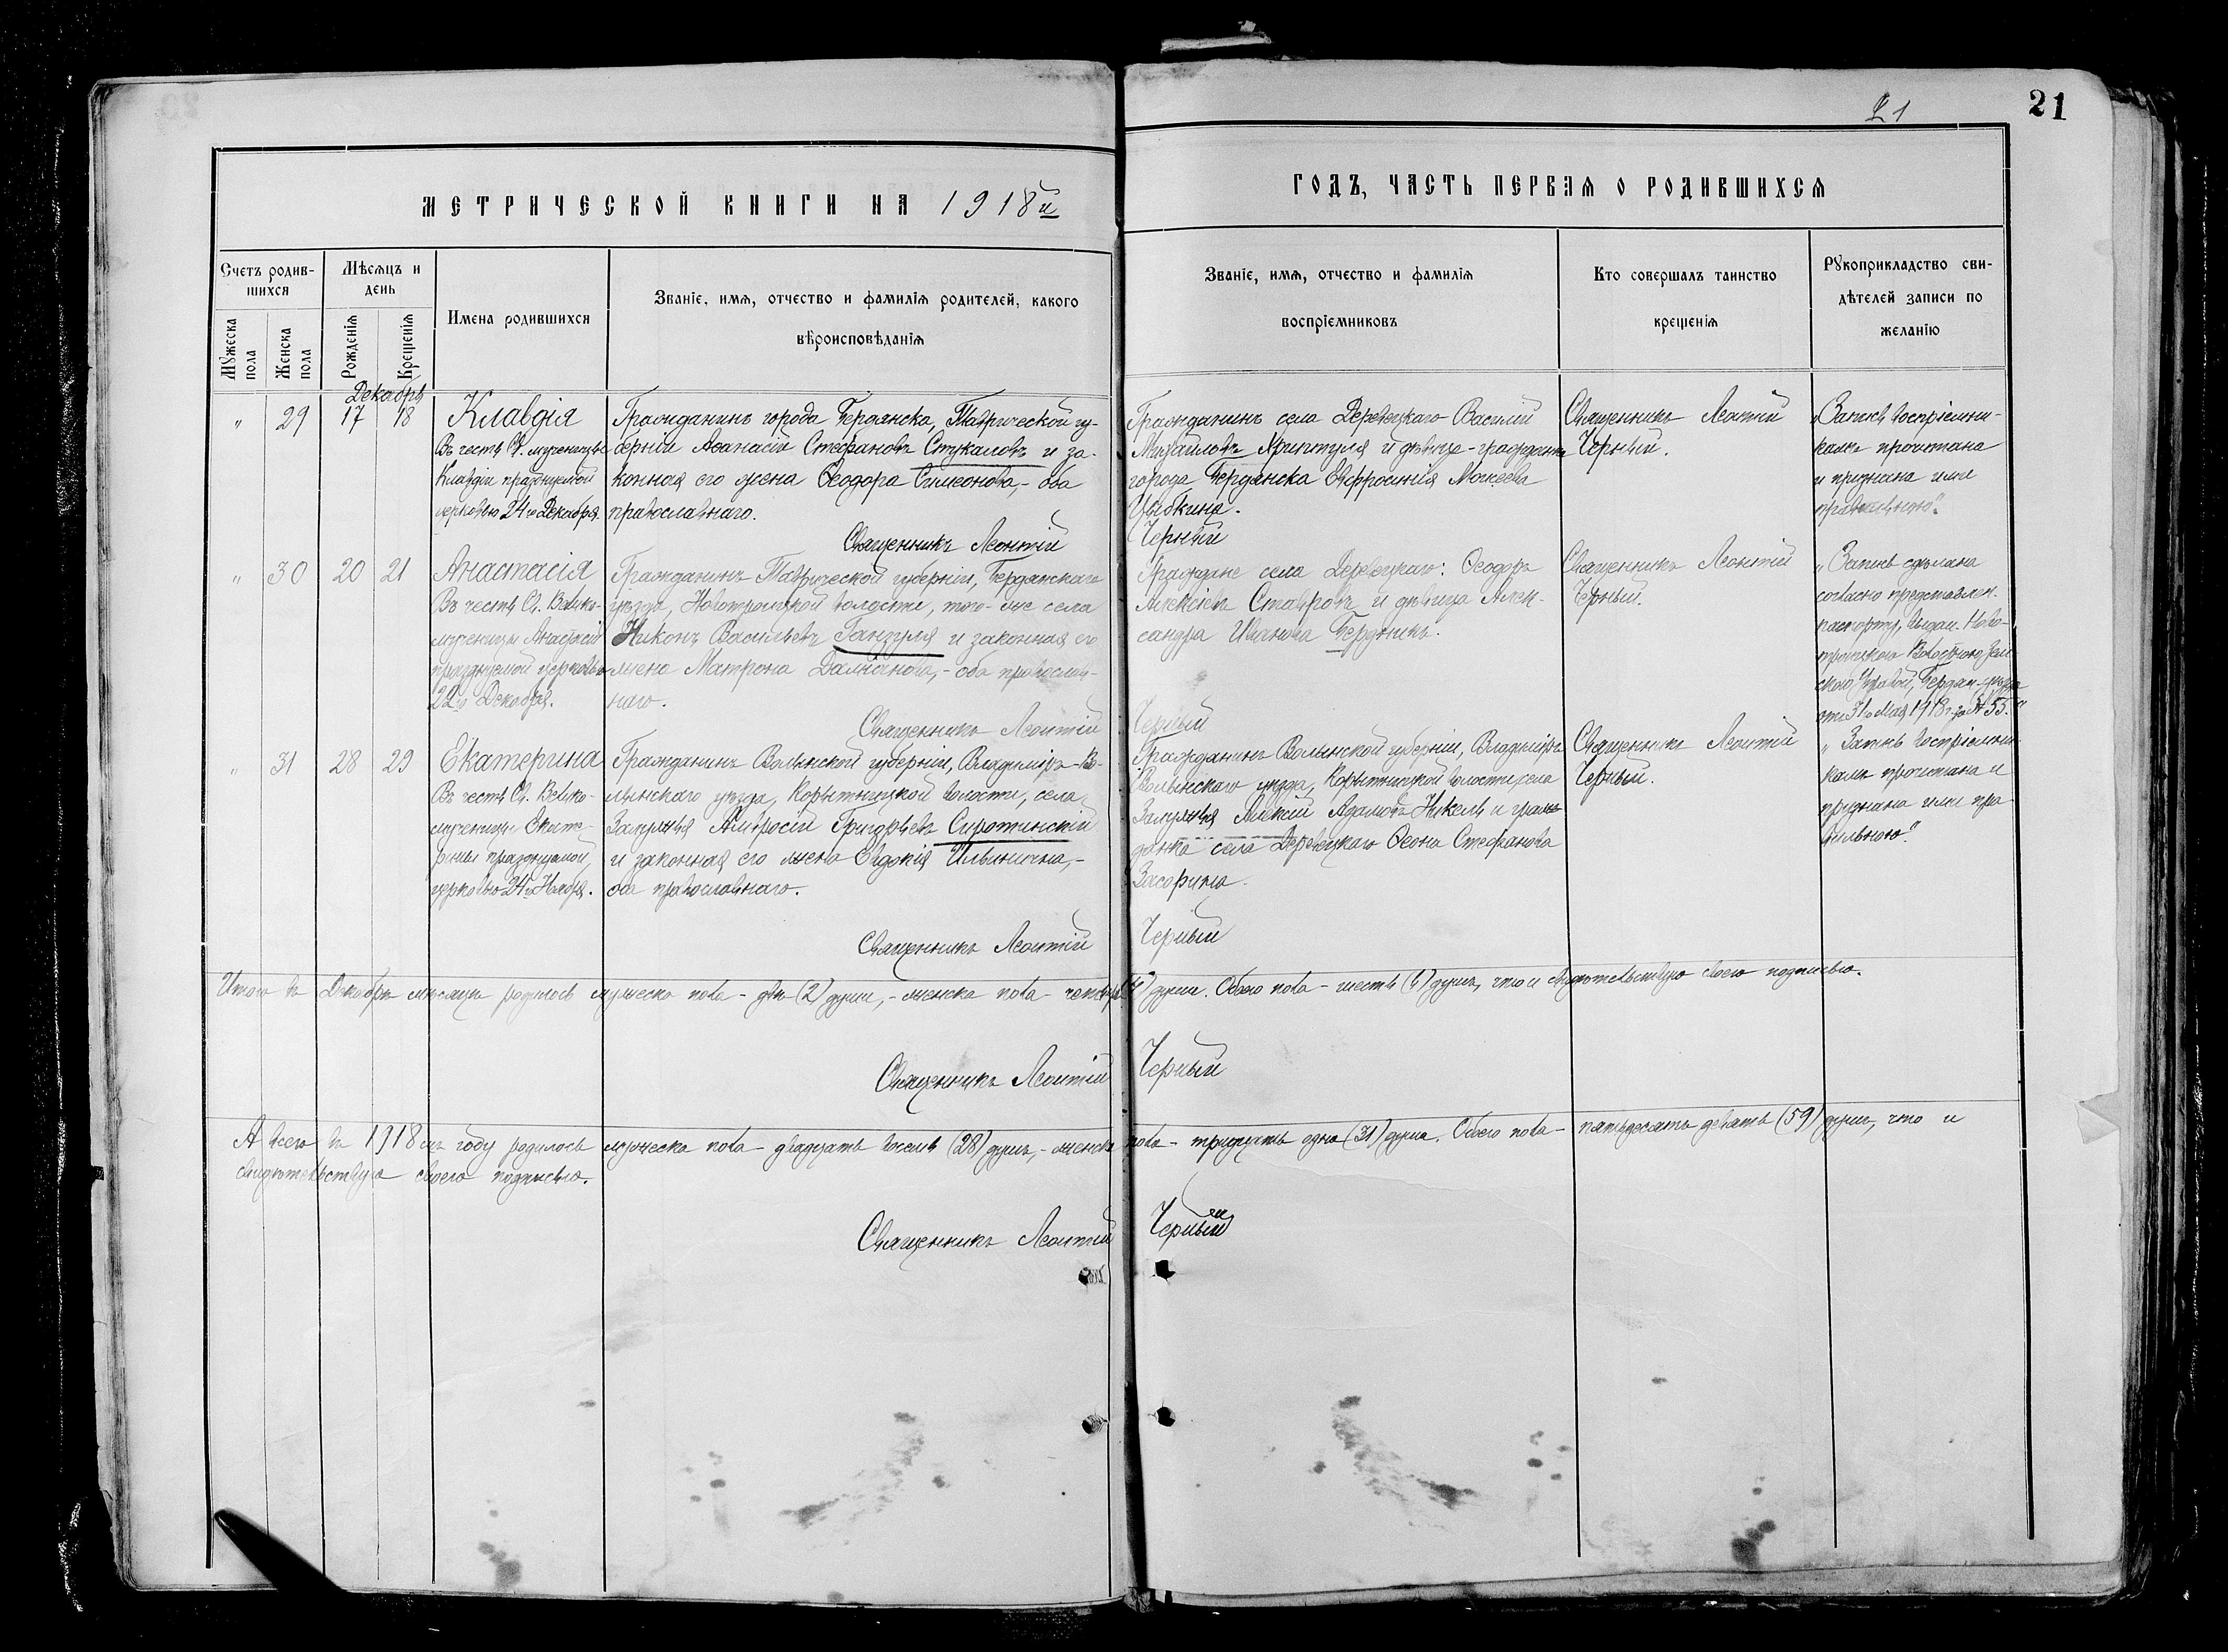 21
21
МЕТРИЧЕСКОЙ КНИГИ НА 1918й
ГОДЪ, ЧАСТЬ ПЕРВАЯ О РОДИВШИХСЯ
Счетъ родив-
шихся
Мѣсяцъ и
день
Имена родившихся
Званіе, имя, отчество и фамилія родителей, какого
вѣроисповѣданія
Мужеска
пола
Женска
пола
Рожденія
Крещенія
Званіе, имя, отчество и фамилія
воспріемниковъ
Кто совершалъ таинство
крещенія
Рукоприкладство сви-
дѣтелей записи по
желанію
Декабрь
" 29 17 18
Клавдія
Въ честь Св. мученицы
Клавдіи празднуемой
церковью 24го Декабря.
Гражданинъ города Бердянска, Таврической гу-
берніи Аѳанасій Стефановъ Стукаловъ и за-
конная его жена Ѳеодора Симеонова,- оба
православнаго.
Гражданинъ села Деревецкаго Василій
Михайловъ Хриптуля и дѣвица-гражданка
города Бердянска Евфросинія Мокеева
Цыбкина.
Священникъ Леонтій
Черный.
„Запись воспріемни-
камъ прочитана
и признана ими
правильною."
Священникъ Леонтій Черный
" 30 20 21
Анастасія
Въ честь Св. Велико-
мученицы Анастасіи
празднуемой церковью
22го Декабря.
Гражданинъ Таврической губерніи, Бердянскаго
уѣзда, Новотроицкой волости, того-же села
Никонъ Васильевъ Ганзуля и законная его
жена Матрона Даміанова,- оба православ-
наго.
Граждане села Деревецкаго: Ѳеодоръ
Алексіевъ Ставровъ и дѣвица Алек-
сандра Иванова Бердникъ.
Священникъ Леонтій
Черный.
„Запись сдѣлана
согласно представлен.
паспорту, выдан. Ново-
троицкою Волостною Зем-
скою Управой, Бердян. уѣзда
отъ 31го Мая 1918 г. за № 55."
Священникъ Леонтій Черный
" 31 28 29
Екатерина
Въ честь Св. Велико-
мученицы Екате-
рины празднуемой
церковью 24го Ноября.
Гражданинъ Волынской губерніи, Владиміръ-Во-
лынскаго уѣзда, Корытницкой волости, села
Замлынья Амвросій Григорьевъ Сиротинскій
и законная его жена Евдокія Ильинична,-
оба православнаго.
Гражданинъ Волынской губерніи, Владиміръ-
Волынскаго уѣзда, Корытницкой волости, села
Замлынья Алексій Адамовъ Никель и граж-
данка села Деревецкаго Ѳеона Стефанова
Засорина.
Священникъ Леонтій
Черный.
„Запись воспріемни-
камъ прочитана и
признана ими пра-
вильною."
Священникъ Леонтій Черный
Итого въ Декабрѣ мѣсяцѣ родилось мужеска пола - двѣ (2) души,- женска пола - четыре (4) души. Обоего пола - шесть (6) душъ, что и свидѣтельствую своею подписью.
Священникъ Леонтій Черный
А всего въ 1918мъ году родилось мужеска пола - двадцать восемь (28) душъ,- женска пола - тридцать одна (31) душа. Обоего пола - пятьдесятъ девять (59) душъ, что и
свидѣтельствую своею подписью.
Священникъ Леонтій Черный